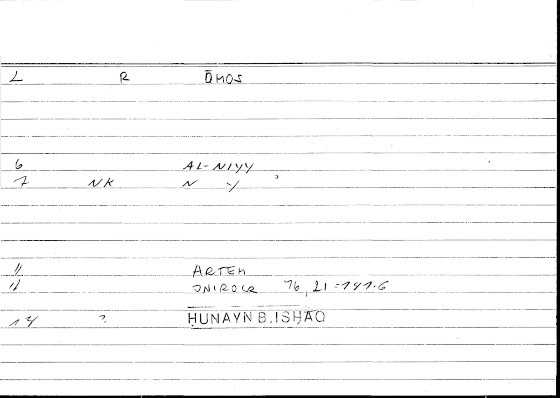 L R ŌMOS
6 AL-NIYY
7 NK N Y
11 ARTEM
11 ONIROCR 76, 21 = 141.6
14 ? ḤUNAYN B. ISḤAQ